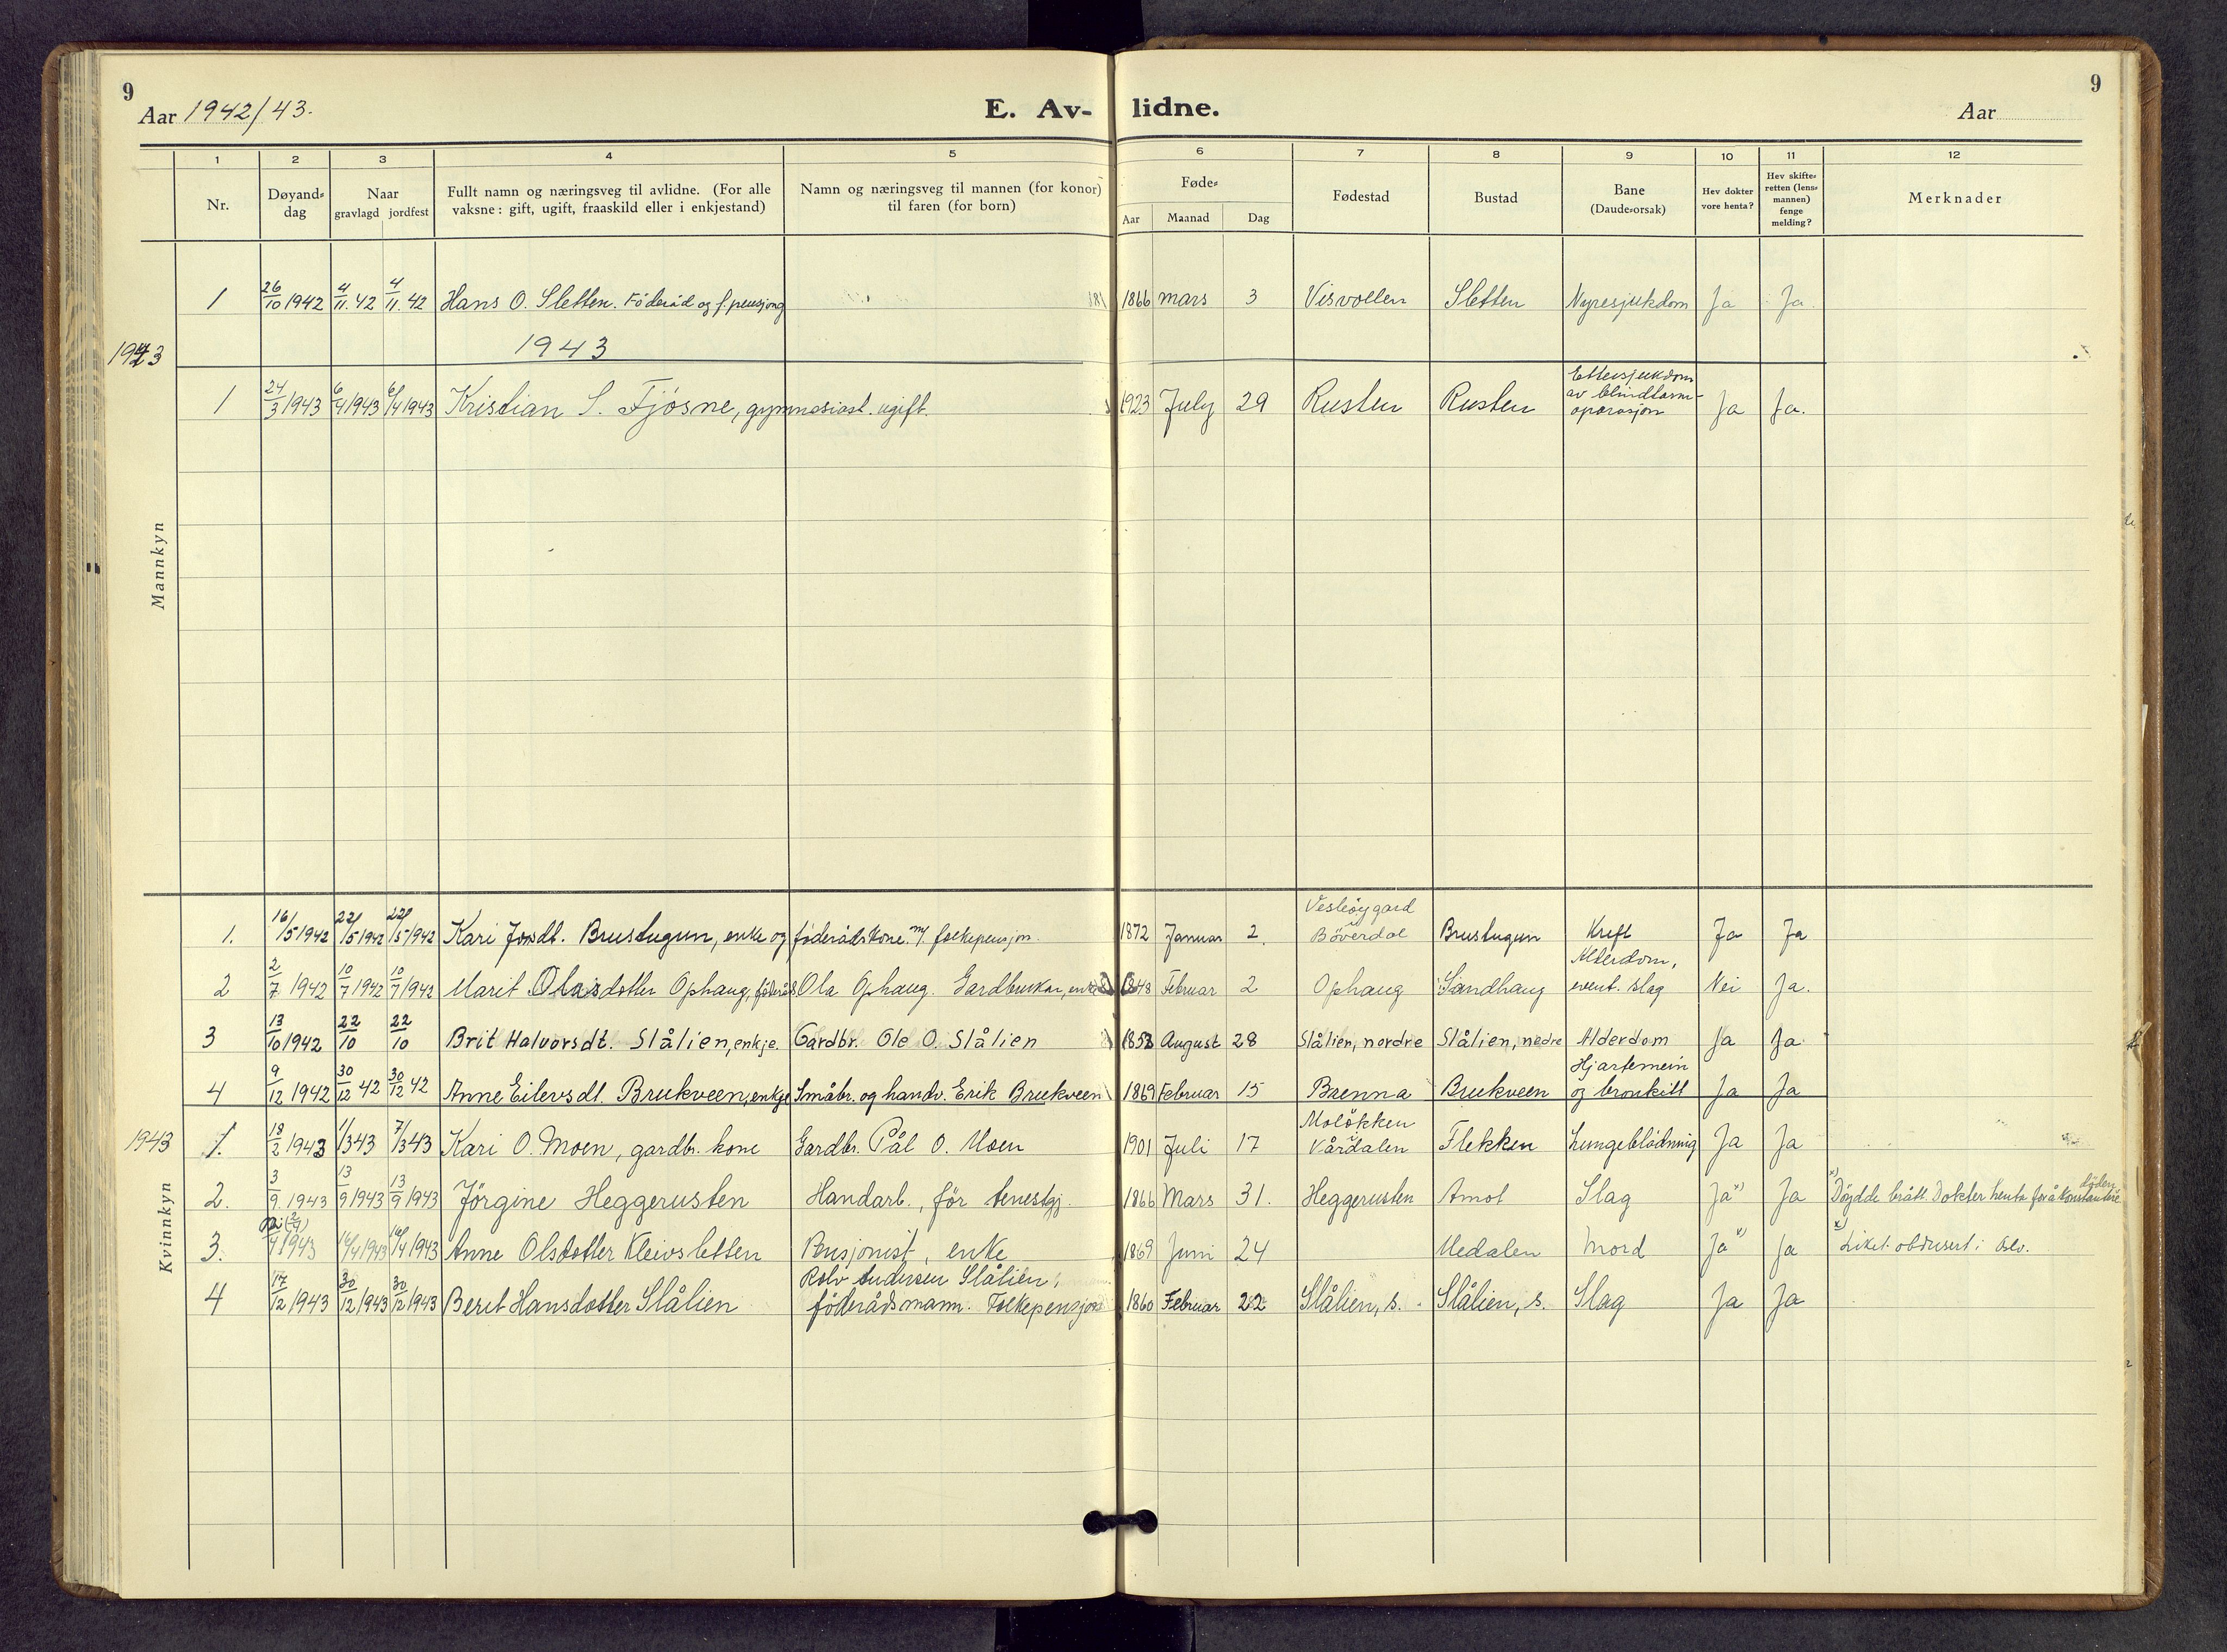 9
Aar 1942/43.
E. Av- lidne.
Aar
9
1 2 3 4 5 6 7 8 9 10 11 12
Nr.
Døyand=
dag
Naar
gravlagd jordfest
Fullt namn og næringsveg til avlidne. (For alle
vaksne: gift, ugift, fraaskild eller i enkjestand)
Namn og næringsveg til mannen (for konor)
til faren (for born)
Føde=
Aar Maanad Dag
Fødestad
Bustad
Bane
(Daude=orsak)
Hev dokter
vore henta?
Hev skifte=
retten (lens=
mannen)
fenge
melding?
Merknader
1 26/10 1942 4/11. 42 4/11. 42 Hans O. Sletten. Föderåd og f. pensjon 1866 mars 3 Visvollen Sletten Nyresjukdom Ja Ja.
1943
1943
1 24/3 1943 6/4 1943 6/4 1943 Kristian S. Fjøsne, gymnasiast. ugift. 1923 July 29 Rusten Rusten Ettersjukdom
av blindtarm-
oparasjon Ja Ja.
Mannkyn
1. 16/5 1942 22/5 1942 22/5 1942 Kari Jonsdt. Brustugun, enke og föderådskone. m/ folkepensjon. 1872 Januar 2. Vesleøygard
i Böverdal Brustugun Kreft Ja Ja
2 2/7 1942 10/7 1942 10/7 1942 Marit Olasdotter Ophaug, föderåds Ola Ophaug. Gardbrukar, enke 1848 Februar 2 Ophaug Sandhaug Alderdom,
event. slag Nei Ja.
3 13/10 1942 22/10 22/10 Brit Halvorsdt. Slålien, enkje. Gardbr. Ole O. Slålien 1852 August 28 Slålien, nordre Slålien, nedre Alderdom Ja Ja
4 9/12 1942 30/12 42 30/12 42 Anne Eilevsdt. Brukveen, enkje Småbr. og handv. Erik Brukveen 1869 Februar 15 Brenna Brukveen Hjartemein
og bronkitt Ja Ja
1943
1. 18/2 1943 1/3 43 7/3 43 Kari O. Moen, gardbr. kone Gardbr. Pål O. Moen 1901 Juli 17 Molökken
i Vårdalen Flekken Lungeblödning Ja Ja
2. 3/9 1943 13/9 1943 13/9 1943 Jörgine Heggerusten Handarb., för tenestgj. 1866 Mars 31. Heggerusten Åmot Slag Ja x) Ja x) Döydde brått. Dokter henta for å konstantere döden.
3. 4 1943 16/4 1943 16/4 1943 Anne Olsdotter Kleivsletten Pensjonist, enke 1869 Juni 24 Medalen Mord Ja x) Ja x) Liket obdusert i Oslo.
4 17/12 1943 30/12 1943 30/12 1943 Berit Hansdotter Slålien Rolv Andersen Slålien,
föderådsmann. Folkepensjon 1860 Februar 22 Slålien, s. Slålien, s. Slag Ja Ja
Kvinnkyn